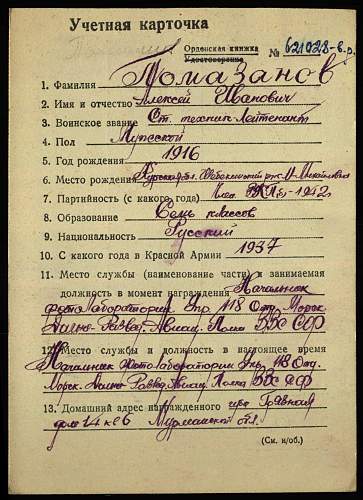 Учетная карточка
Орденская книжка
Удостоверение № 621028-б.р.
1. Фамилия Помазанов
2. Имя и отчество Алексей Иванович
3. Воинское звание Ст. техник лейтенант
4. Пол Мужской
5. Год рождения 1916
6. Место рождения Курская обл.
7. Партийность (с какого года) Член ВКП(б)-1942
8. Образование Семь классов
9. Национальность Русский
10. С какого года в Красной Армии 1937
11. Место службы (наименование части) и занимаемая
должность в момент награждения Начальник
фотолаборатории Упр. 118 Отд. Морск.
Дально-Развед. Авиац. Полка ВВС СФ
12. Место службы и должность в настоящее время
Начальник Фотолаборатории Упр. 118 Отд.
Морск. Дально Развед. Авиац. Полка ВВС СФ
13. Домашний адрес награжденного Грязная
дом 14 кв 6 Мурманской обл.
(См. н/об.)